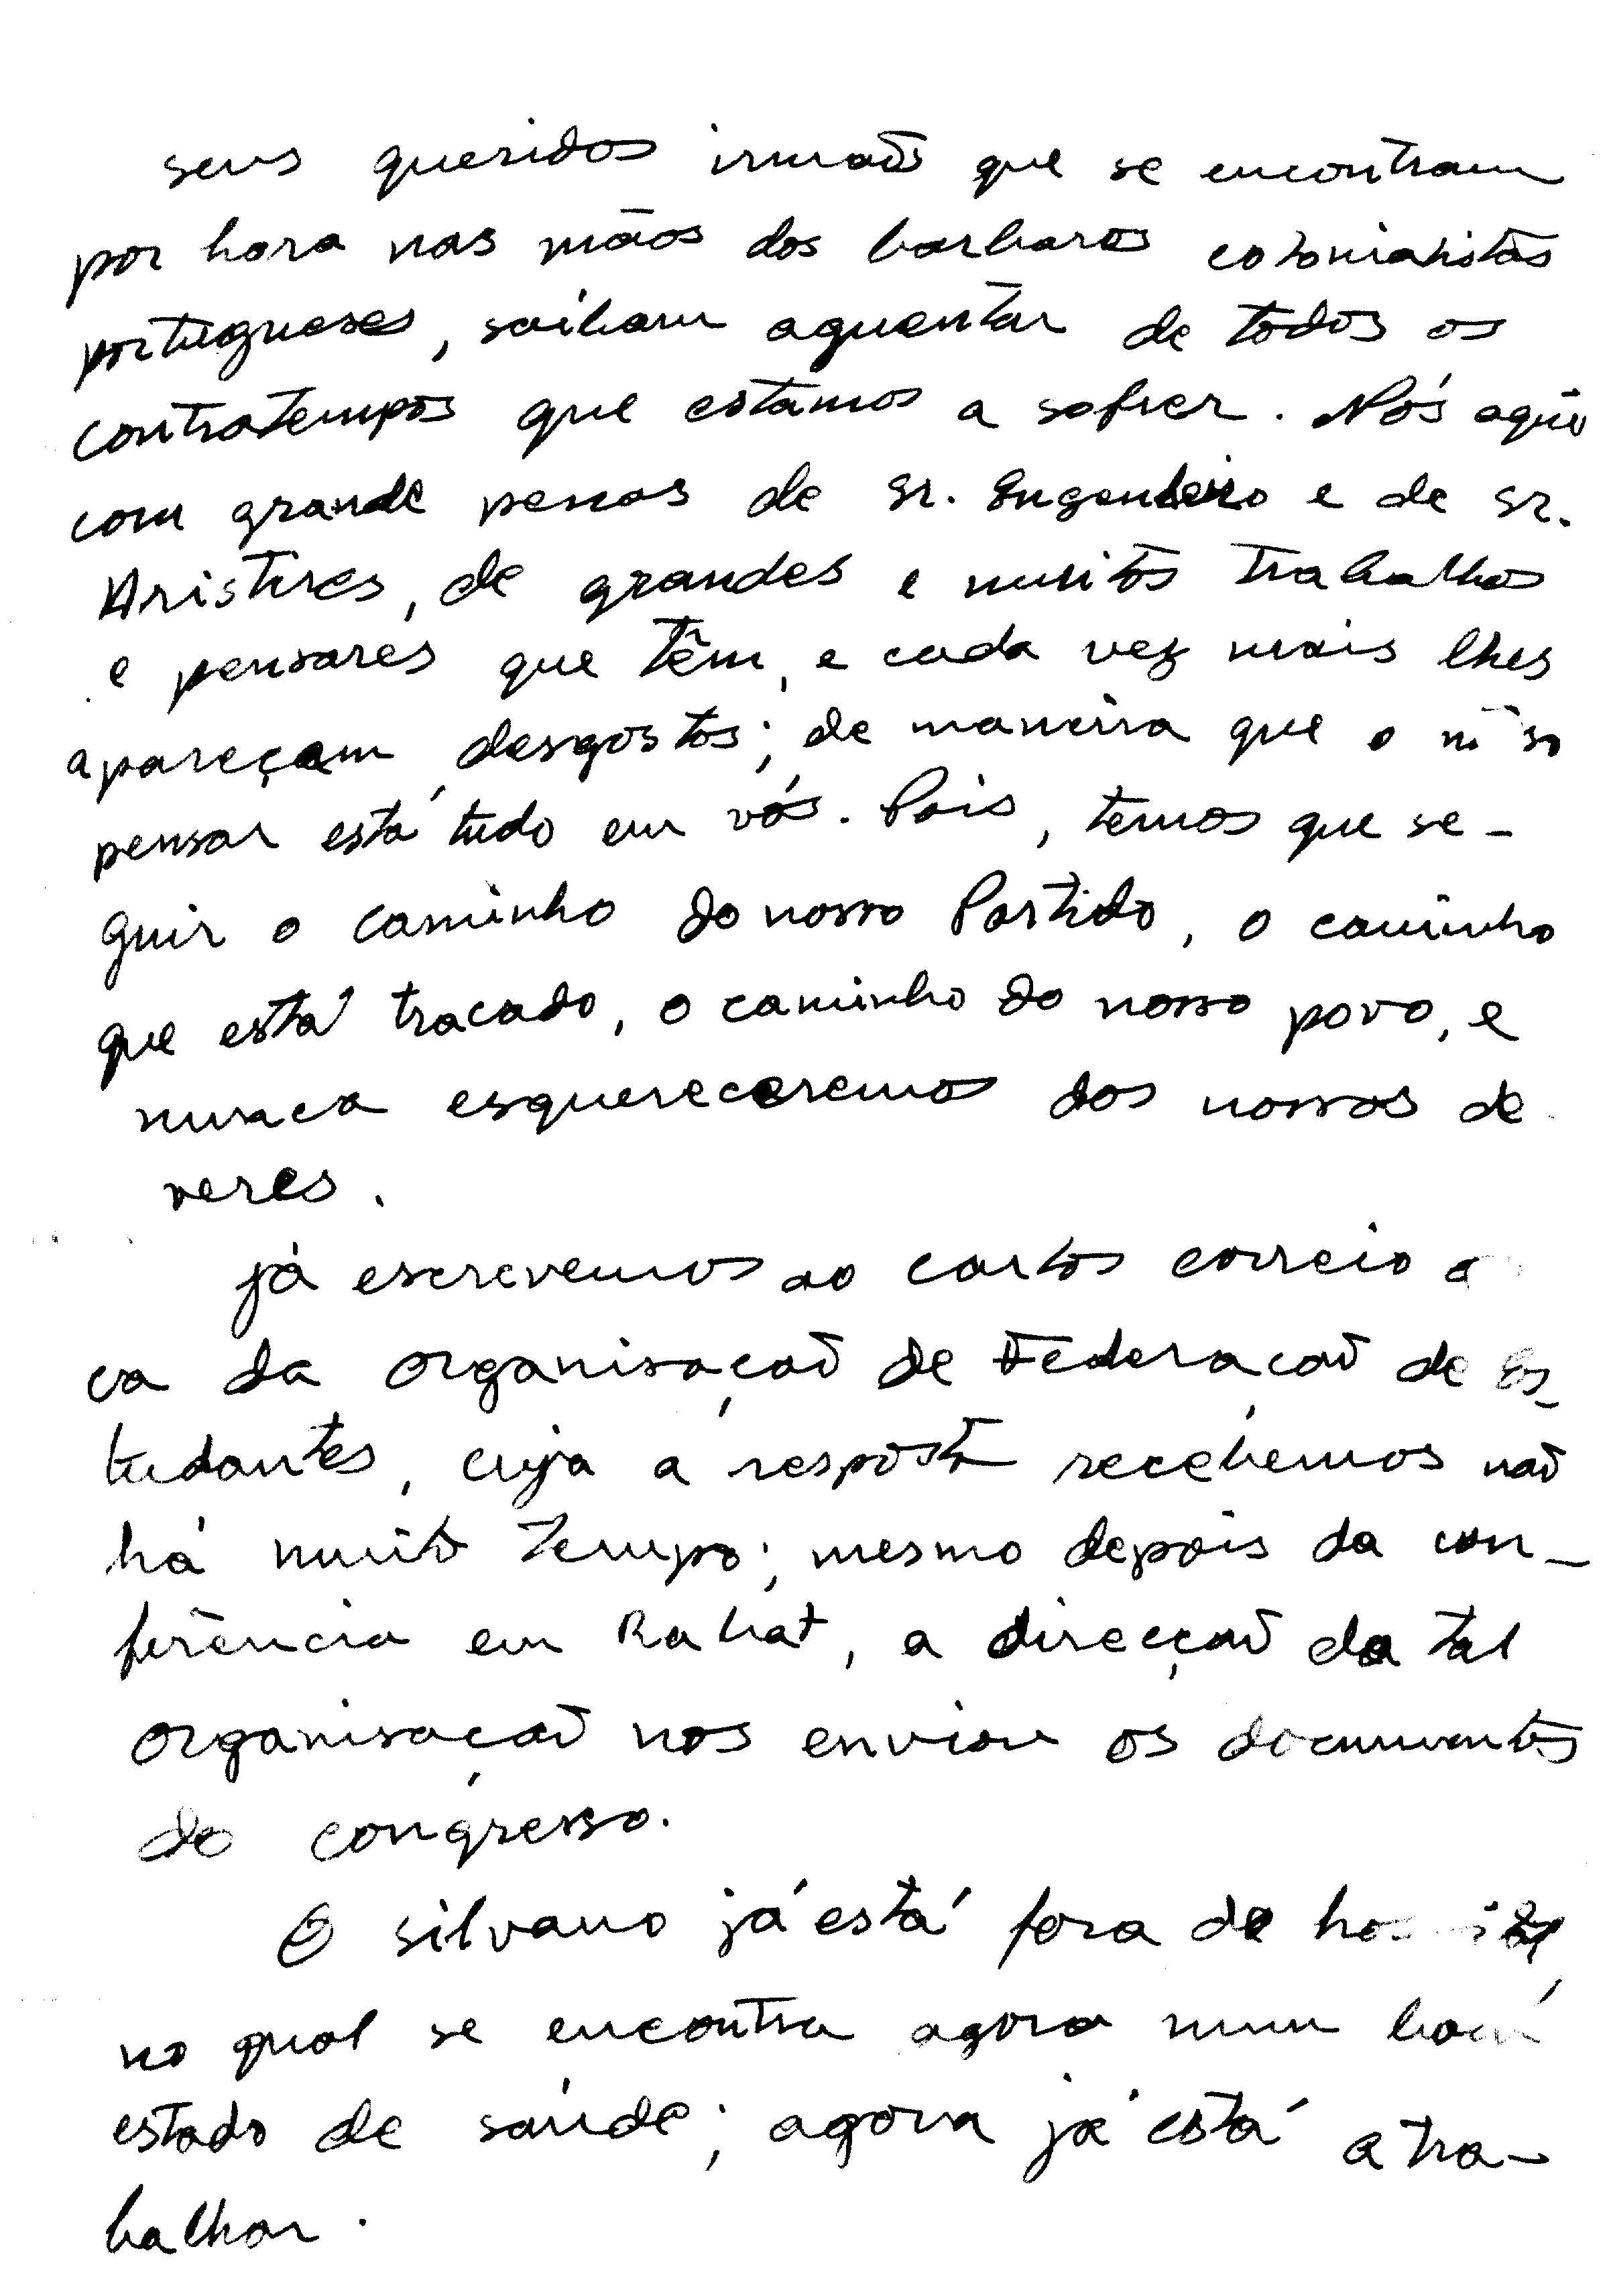 seus queridos irmaõs que se encontram
por hora nas mãos dos barbaros colonialistas
portugueses, saibam aguentar de todos os
contratempos que estamos a sofrer. Nós aqui
com grande penas de sr. Engenheiro e de sr.
Aristires, de grandes e muitos trabalhos
e pensares que têm, e cada vez mais lhes
apareçam desgostos; de maneira que o
pensar está tudo em vós. Pois, temos que se-
guir o caminho do nosso Partido, o caminho
que está tracado, o caminho do nosso povo, e
nunca esquereceremos dos nossos de
veres.
já escrevemos ao carlos correio
ca da organisaçaõ de Federaçaõ de Es-
tudantes, cuja a resposta recebemos naõ
há muito tempo; mesmo depois da con-
ferência em Rabat, a direcçaõ da tal
organisaçaõ nos enviou os documentos
do congresso.
O silvano já está fora de
no qual se encontra agora num bom
estado de saúde; agora já está a tra-
balhar.